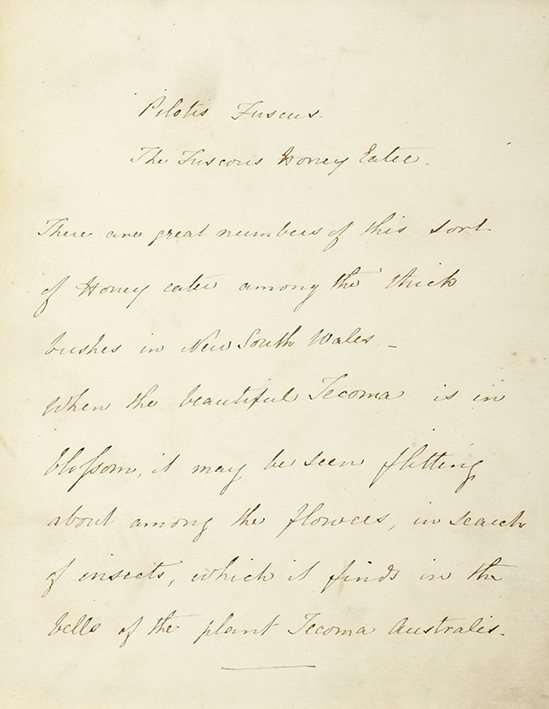 Pilotis Fuscus.
The Fuscous Honey Eater.
There are great numbers of this sort
of Honey eater among the thick
bushes in New South Wales –
When the beautiful Tecoma is in
blossom, it may be seen flitting
about among the flowers, in search
of insects, which it finds in the
bells of the plant Tecoma Australis.